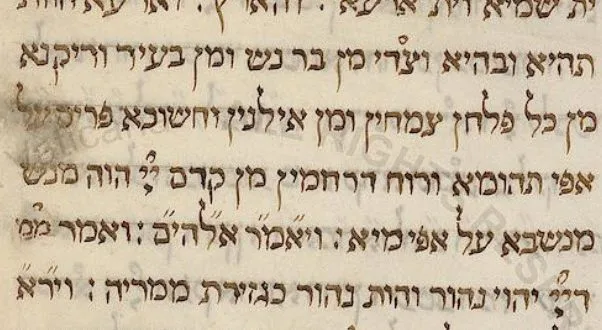 ית שמיא וית ארעא : והארץ : וארעא הוות
תהיא ובהיא וצדי מן בר נש ומן בעיר וריקנא
מן כל פלחן צמחין ומן אילנין וחשוכא פריס על
אפי תהומא ורוח דרחמין מן קדם ייי הוה מנש
מנשבא על אפי מיא : ויאמר אלהים : ואמר ממ
דייי יהוי נהור והות נהור כגזירת ממריה : וירא